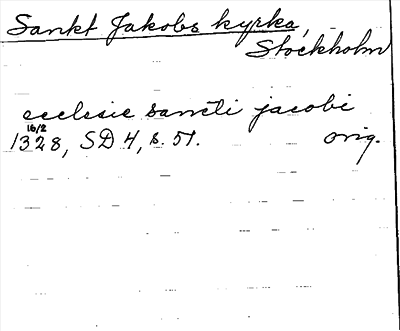 Sankt Jakobs kyrka,
Stockholm
ecclesie sancti jacobi
16/2
1328, SD 4, s. 51. orig.